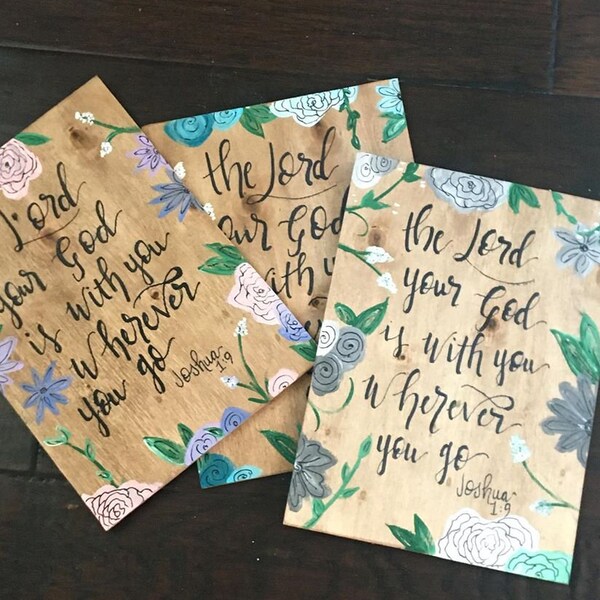 Lord
your God
is with you
wherever
you go
Joshua
1:9
the Lord
your God
with
the Lord
your God
is with you
wherever
you go
Joshua
1:9